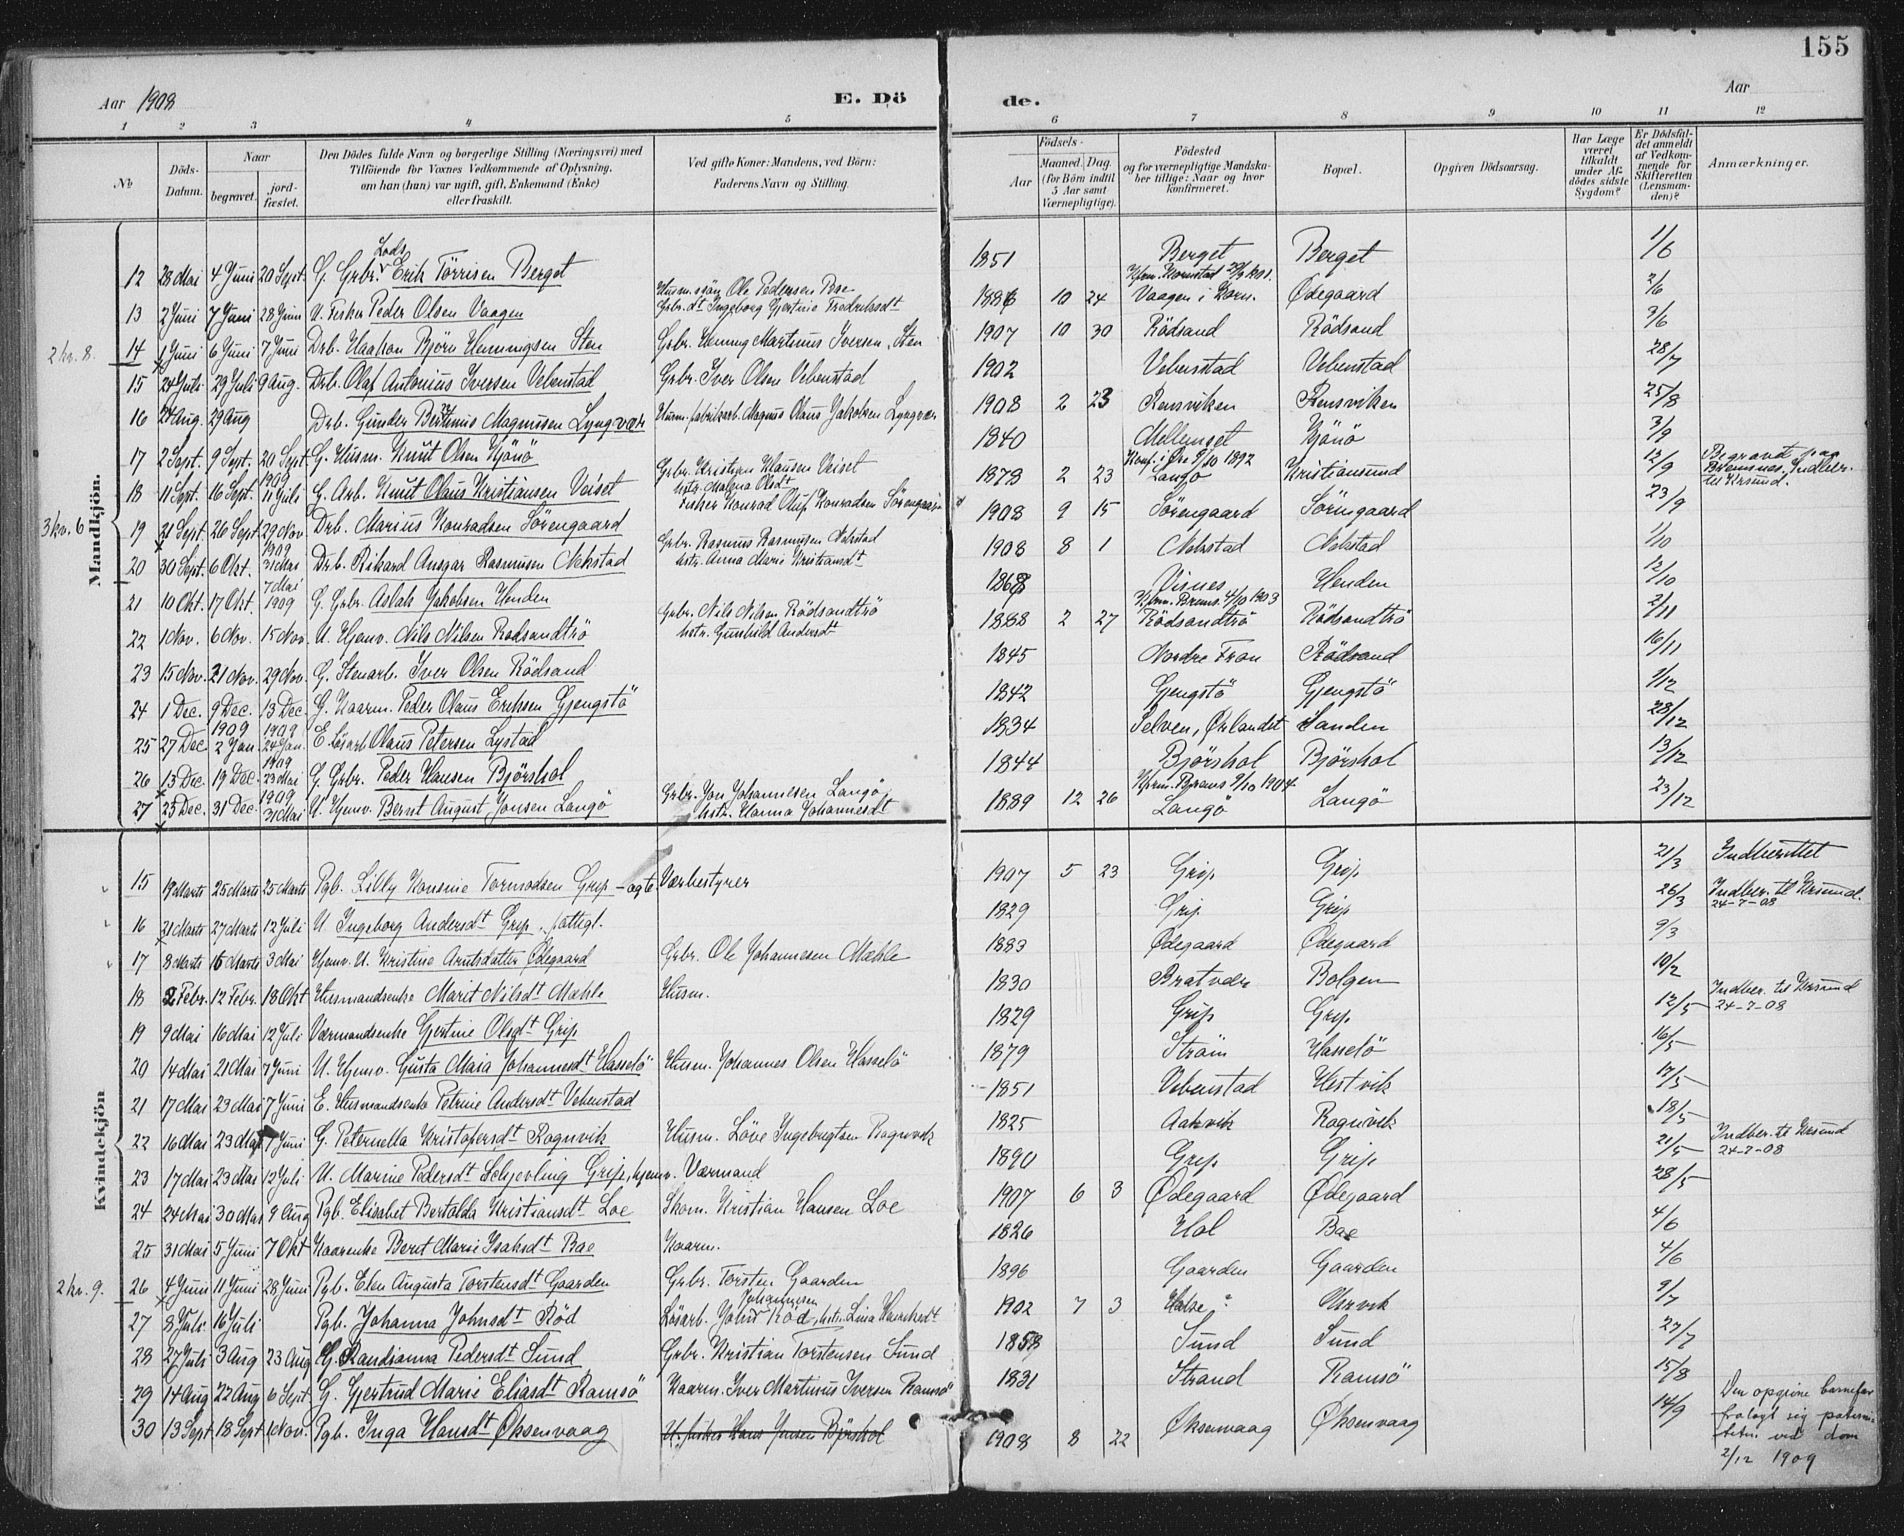 155
Aar 1908
E. Dö
de.
Aar
1 2 3 4 5 6 7 8 9 10 11 12
No
Döds-Datum.
Naar
begravet.
jord-fæstet.
Den Dödes fulde Navn og borgerlige Stilling (Næringsvei) med
Tilföiende for Voxnes Vedkommende af Oplysning,
om han (hun) var ugift, gift, Enkemand (Enke)
eller fraskilt.
Ved gifte Koner: Mandens, ved Börn:
Faderens Navn og Stilling.
Födsels-
Aar
Maaned. Dag.
(for Börn indtil
5 Aar samt
Værnepligtige).
Födested
og for værnepligtige Mandska-
ber tillige: Naar og hvor
konfirmeret.
Bopæl.
Opgiven Dödsaarsag.
Har Læge
været
tilkaldt
under Af-
dödes sidste
Sygdom?
Er Dödsfal-
det anmeldt
af Vedkom-
mende for
Skifteretten
(Lensman-
den)?
Anmærkninger.
Mandkjön.
12 28 Mai 4 Juni 20 Sept. G. Grbr. Lods Erik Törrisen Berget 1851 Berget Berget 1/6
13 2 Juni 7 Juni 28 Juni U. Fisker Peder Olsen Vaagen Husm. Ole Pedersen Bae Grbr.dt Ingeborg Gjertine Fredriksdt 1886 10 24 Vaagen i Korn. Ødegaard 2/6
2 kv. 8.
14 1 Juni 6 Juni 7 Juni Drb. Haakon Björn Henningsen Sten Grbr. Henning Martinus Iversen Sten 1907 10 30 Rödsand Rödsand 3/6
15 24 Juli 29 Juli 9 Aug. Drb. Olaf Antonius Iversen Vebenstad Grbr. Iver Olsen Vebenstad 1902 Vebenstad Vebenstad 28/7
16 24 Aug. 29 Aug Drb. Gunder Bertinus Magnusen Lyngvær Husm. fabrikarb. Magnus Olaus Jakobsen Lyngvær 1908 2 23 Rensviken Rensviken 25/8
17 2 Sept. 9 Sept. 20 Sept. G. Husm. Knut Olsen Kjönö 1840 Mellemset Kjönö 3/9
18 11 Sept. 16 Sept. 1909 11 Juli G. Arb. Knut Olaus Kristiansen Veiset Grbr. Kristian Klausen Veiset hstr. Malena Olsdt 1878 2 23 Konf. i Øre 9/10 1892 Langö Kristiansund 12/9 Begravet paa Bremsnes. Indber. til Krsund.
3 kv. 6
19 21 Sept. 26 Sept. 29 Nov. Drb. Marius Konradsen Sörengaard Fisker Konrad Oluf Konradsen Sörengaard 1908 9 15 Sörengaard Söringaard 23/9
20 30 Sept. 6 Okt. 1909 31 Mai Drb. Rikard Ansgar Rasmusen Nekstad Grbr. Rasmus Rasmusen Nekstad hstr. Anna Marie Kristiansdt 1908 8 1 Nekstad Nekstad 1/10
21 10 Okt. 17 Okt. 7 Mai 1909 G. Grbr. Aslak Jakobsen Henden 1868 Visnes Henden 12/10
22 1 Nov. 6 Nov. 15 Nov. U. Hjemv. Nils Nilsen Rödsandtrö Grbr. Nils Nilsen Rödsandtrö hstr. Gunhild Andersdt 1888 2 27 Kfrm. Brems. 4/10 1903 Rödsandtrö Rödsandtrö 2/11
23 15 Nov. 21 Nov. 29 Nov. G. Stenarb. Iver Olsen Rödsand 1845 Nordre Fron Rödsand 16/11
24 1 Dec. 9 Dec. 13 Dec. G. Kaarm. Peder Olaus Eriksen Gjengstö 1842 Gjengstö Gjengstö 2/12
25 27 Dec. 1909 2 Jan. 1909 24 Jan. E. Lösarb. Olaus Petersen Lystad 1834 Selven, Ørlandet Sanden 28/12
26 13 Dec. 19 Dec. 1909 23 Mai G. Grbr. Peder Hansen Björshol 1844 Björshol Björshol 13/12
27 25 Dec. 31 Dec. 1909 31 Mai U. Hjemv. Bernt August Jonsen Langö Grbr. Jon Johannesen Langö, hstr. Hanna Johannesdt 1889 12 26 Kfrm. Brems 9/10 1904 Langö Langö 23/12
Kvindekjön
15 19 Marts 25 Marts 25 Marts Pgb. Lilly Konsnie Tormodsen Grip - ægte Værbestyrer 1907 5 23 Grip Grip 21/3 Indberettet
16 21 Marts 27 Marts 12 Juli U. Ingeborg Andersdt Grip, fattigl. 1829 Grip Grip 26/3 Indber. til Krsund. 24-7-08
17 8 Marts 15 Marts 3 Mai Hjemv. U. Kristine Arntsdatter Ødegaard Grbr. Ole Johannesen Mæhle 1883 Ødegaard Ødegaard 9/3
18 2 Febr. 12 Febr. 18 Okt Husmandsenke Marit Nilsdt Mæhle Husm. 1830 Bratvær Bolgen 10/2
19 9 Mai 16 Mai 12 Juli Værmandsenke Gjertine Olsdt Grip 1829 Grip Grip 12/5 Indber. til Krsund 24-7-08
20 14 Mai 21 Mai 7 Juni U. Hjemv. Gusta Maia Johannesdt Hasselö Husm. Johannes Olsen Hasselö 1879 Ström Hasselö 16/5
21 17 Mai 23 Mai 7 Juni E. Husmandsenke Petrine Andersdt Vebenstad 1851 Vebenstad Hestvik 17/5
22 16 Mai 23 Mai 7 Juni G. Peternella Kristofersdt Rognvik Husm. Löve Ingebrigtsen Rognvik 1825 Aakvik Rognvik 18/5
23 17 Mai 23 Mai 12 Juli U. Marine Pedersdt Schjevling Grip, hjemv. Værmand 1890 Grip Grip 21/5 Indber. til Krsund 24-7-08
24 24 Mai 30 Mai 9 Aug Pgb. Elisabet Bertolda Kristiansdt Loe Skom. Kristian Hansen Loe 1907 6 3 Ødegaard Ødegaard 28/5
25 31 Mai 5 Juni 7 Okt Kaarenke Berit Marie Isaksdt Bae Kaarm. 1826 Hol Bae 4/6
2 kv. 9.
26 4 Juni 11 Juni 28 Juni Pgb. Elen Augusta Torstensdt Gaarden Grbr. Torsten Gaarden 1896 Gaarden Gaarden 4/6
27 8 Juli 16 Juli Pgb. Johanna Johnsdt Röd Lösarb. John Johannesen Röd, hstr. Lina 1902 7 3 Halse? Ekervik 9/7
28 27 Juli 3 Aug 23 Aug G. Randianna Pedersdt Sund Grbr. Kristian Torstensen Sund 1858 Sund Sund 27/7
29 14 Aug 22 Aug 6 Sept. G. Gjertrud Marie Eliasdt Ramsö Kaarm. Iver Martinus Iversen Ramsö 1831 Strand Ramsö 15/8
30 13 Sept 18 Sept 1 Nov. Pgb. Inga Hansdt Øksenvaag U. fisker Hans Jensen Björshol 1908 8 22 Øksenvaag Øksenvaag 14/9 Den opgivne barnefar fralagt sig paterni-teten ved dom 2/12 1909